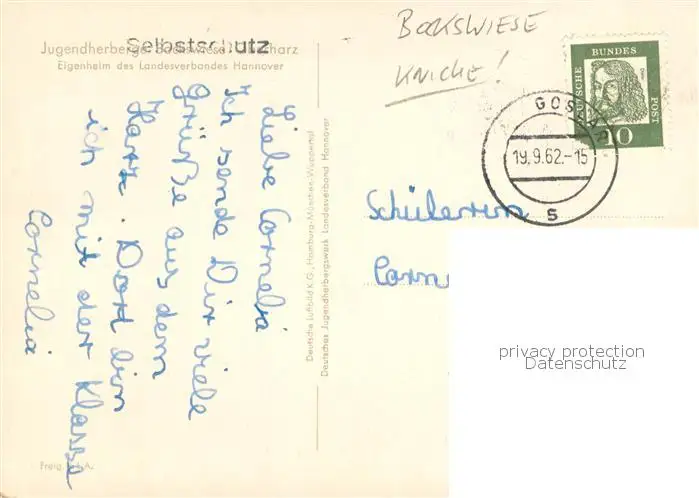 Jugendherberge Bockswiese Oberharz
Selbstschutz
Eigenheim des Landesverbandes Hannover
BOCKSWIESE
KNICKE!
DEUTSCHE BUNDES POST
10
GOSLAR
19.9.62.-15
S
Liebe Cornelia
Ich sende Dir viele
Grüße aus dem
Harz. Dort bin
ich mit der Klasse
Cornelia
Deutsche Luftbild K.G., Hamburg-München-Wuppertal
Deutsches Jugendherbergswerk Landesverband Hannover
Schülerin
Corn
privacy protection
Datenschutz
Freig.